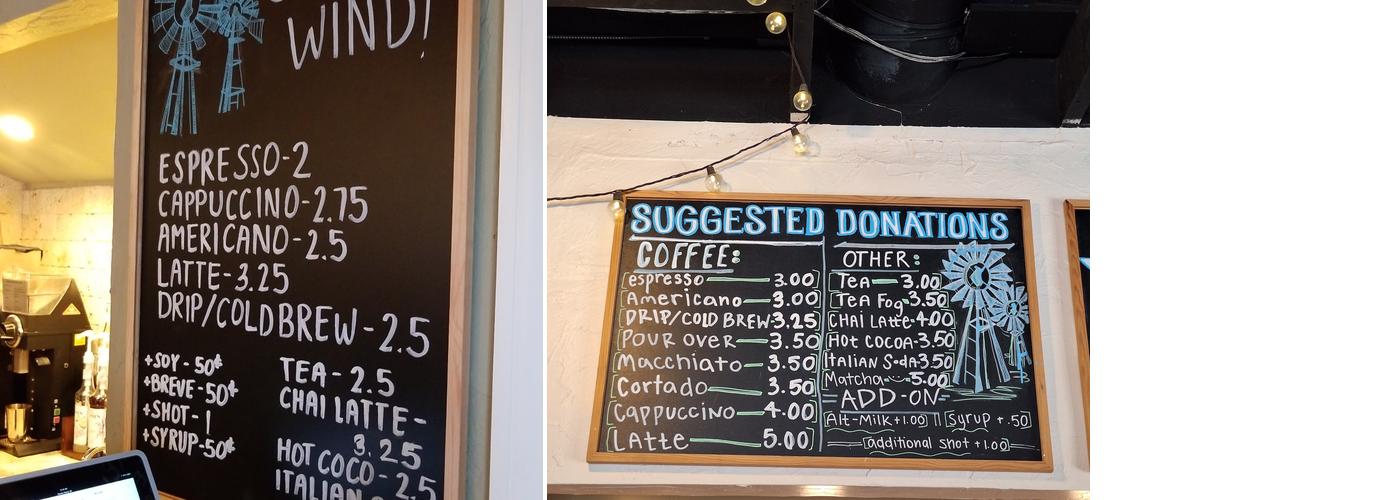 WIND!
ESPRESSO-2
CAPPUCCINO-2.75
AMERICANO-2.5
LATTE-3.25
DRIP/COLD BREW-2.5
+SOY-50¢
+BREVE-50¢
+SHOT-1
+SYRUP-50¢
TEA-2.5
CHAI LATTE-
3.25
HOT COCO-2.5
ITALIAN
SUGGESTED DONATIONS
COFFEE:
espresso 3.00
Americano 3.00
DRIP/COLD BREW-3.25
POUR OVER 3.50
Macchiato 3.50
Cortado 3.50
Cappuccino 4.00
LAtte 5.00
OTHER:
TEA 3.00
TEA Fog 3.50
CHAI LAtte 4.00
Hot COCOA-3.50
Italian Soda 3.50
Matcha 5.00
ADD-ON
Alt-Milk +1.00 || Syrup +.50
additional shot +1.00